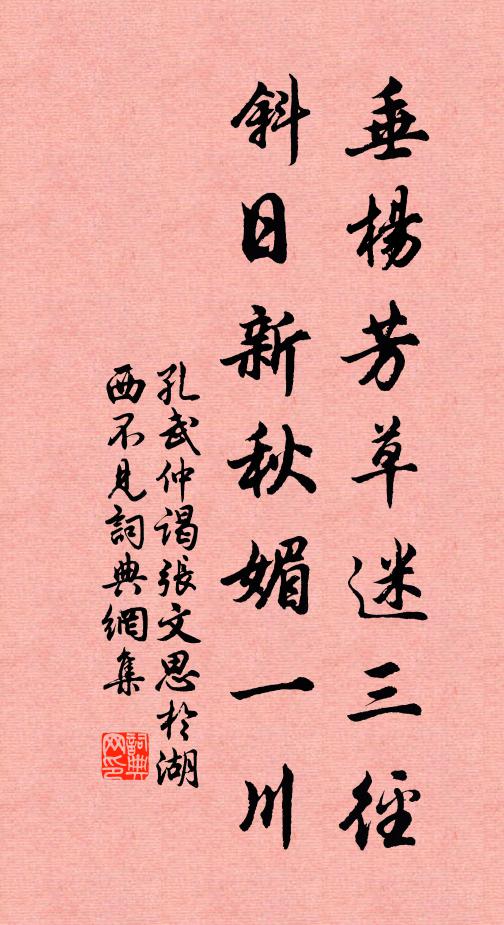 垂楊芳草迷三徑
斜日新秋媚一川
孔武仲謁張文思於湖
西不見詞典網集
詞典网印